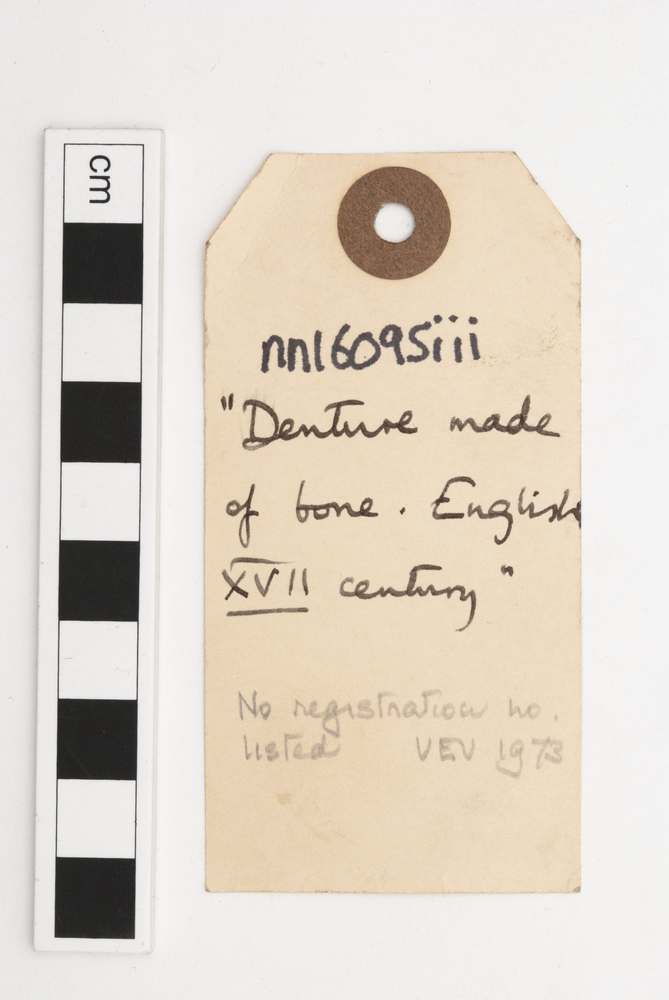 cm
nn16095iii
"Denture made
of bone. English
XVII century"
No registration no.
listed VEV 1973